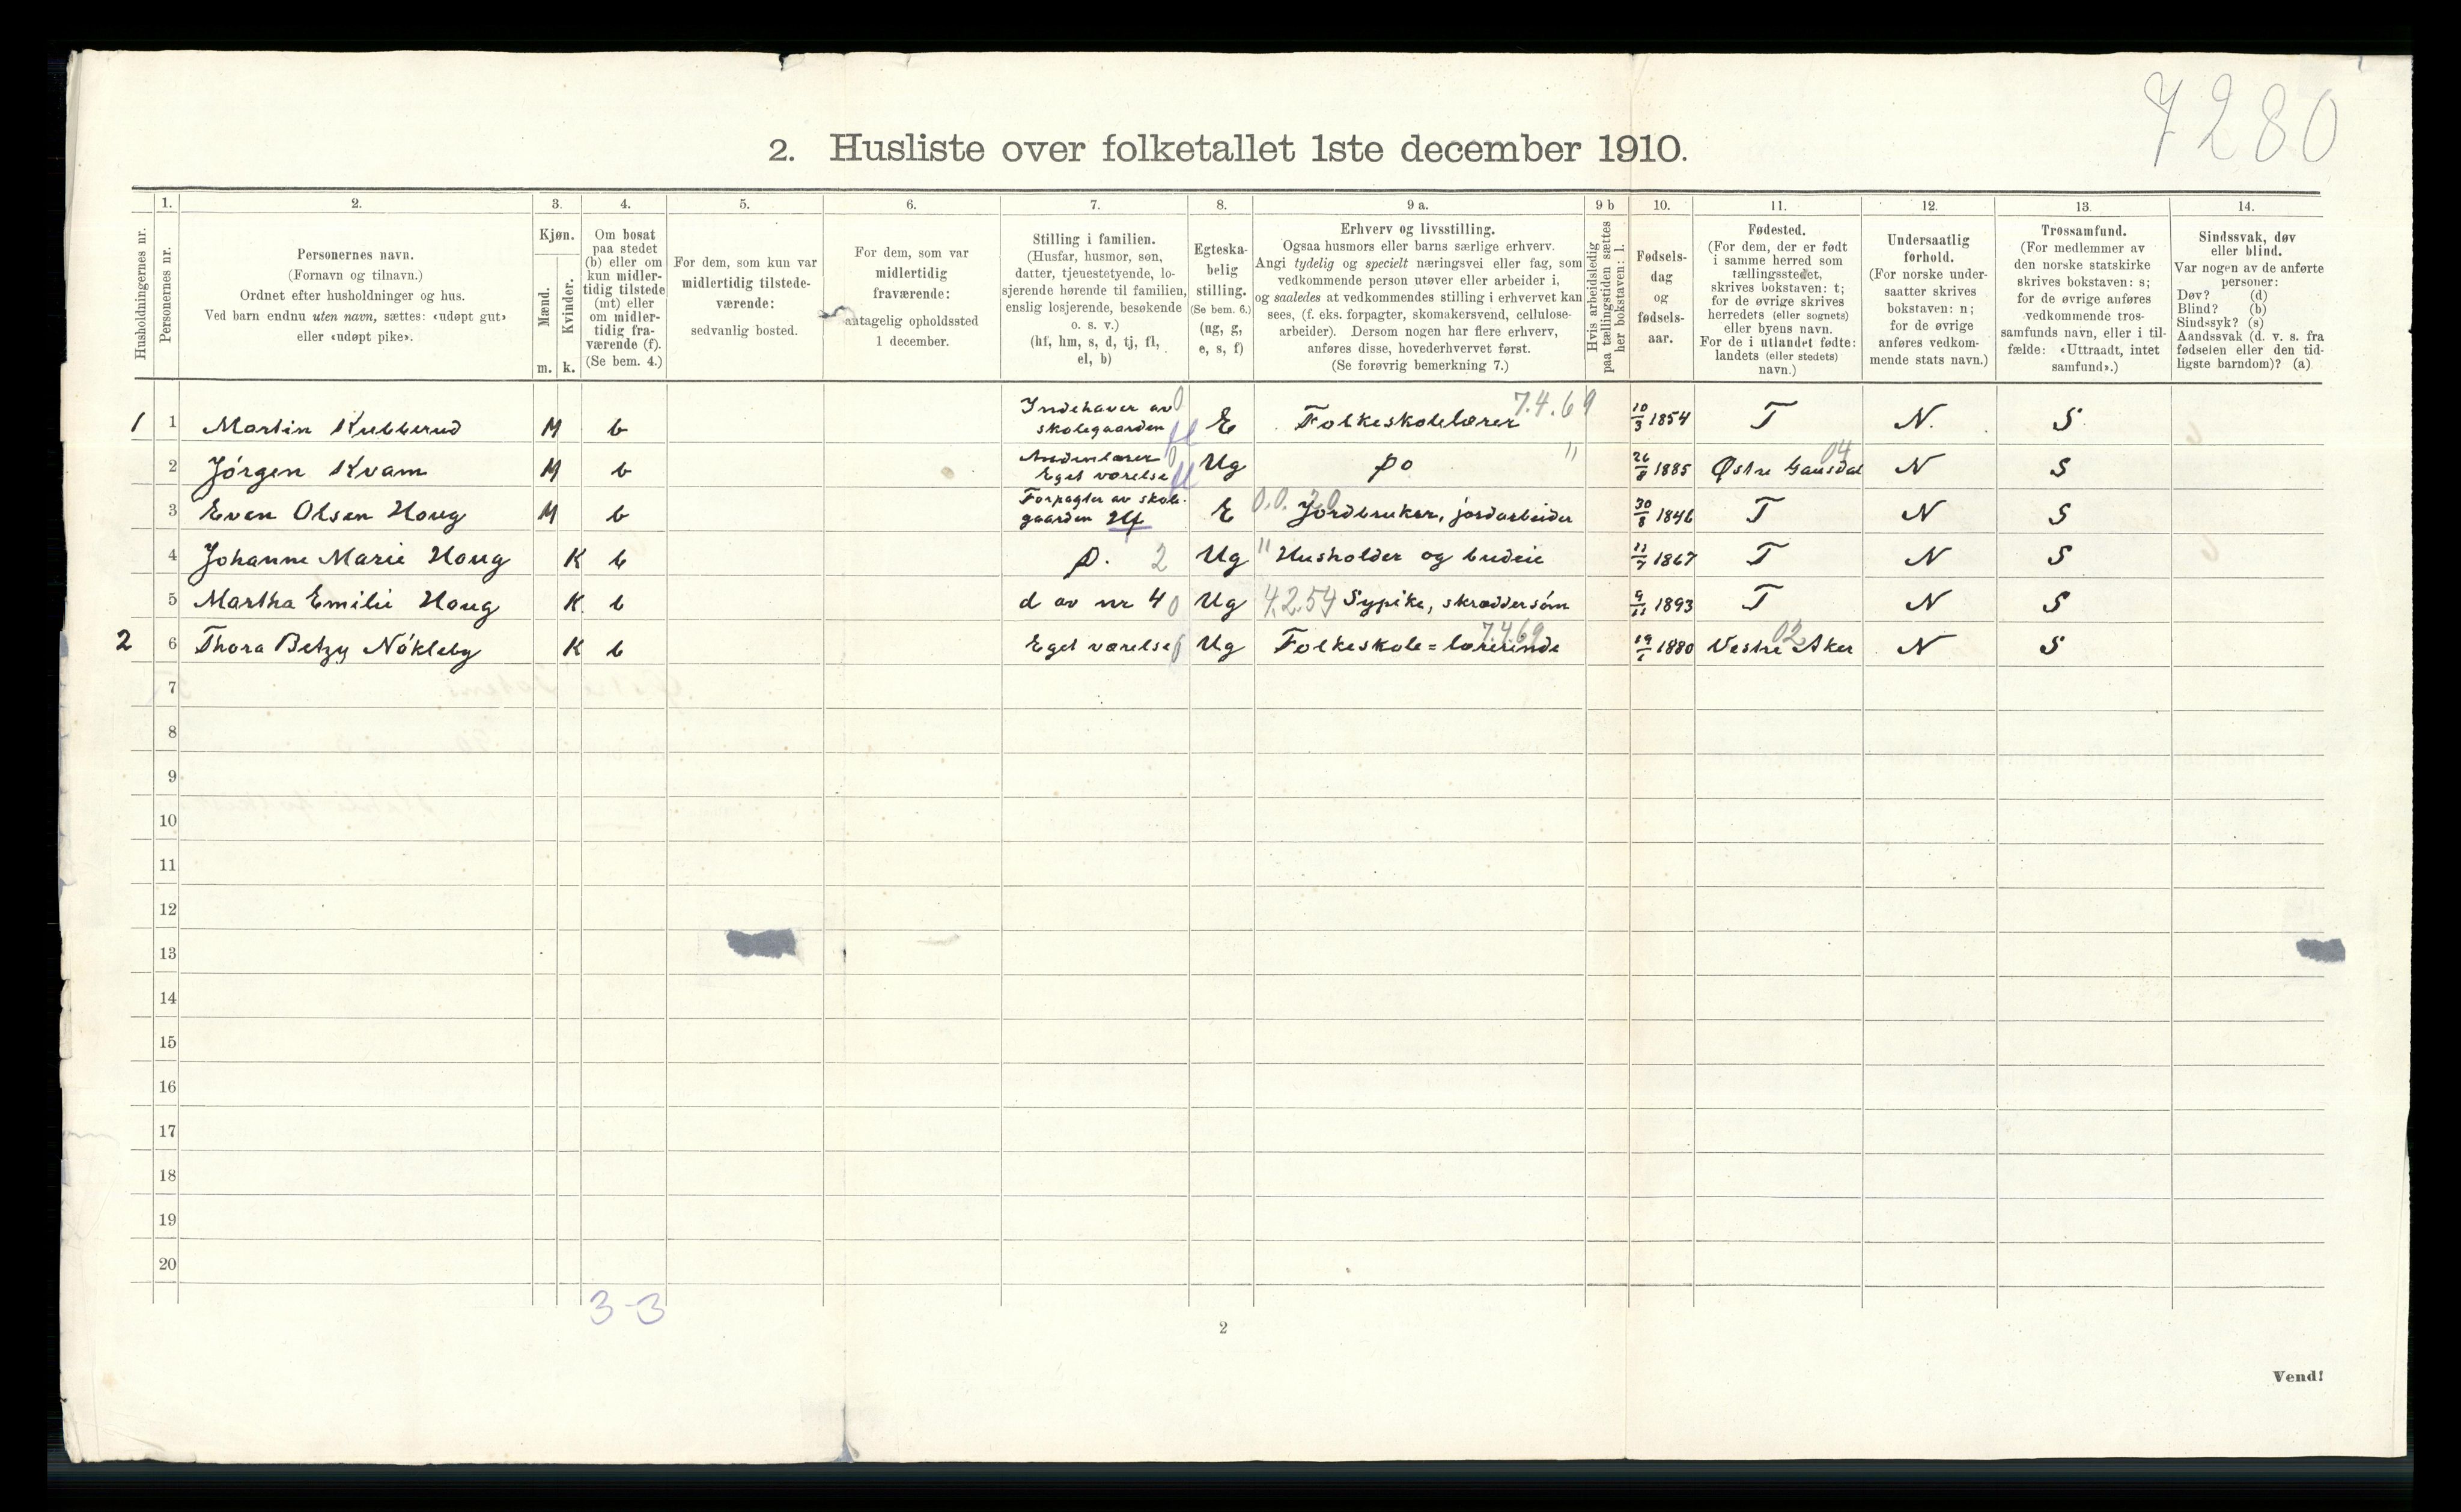 7280
2. Husliste over folketallet 1ste december 1910.
Husholdningernes nr.
1.
Personernes nr.
2.
Personernes navn.
(Fornavn og tilnavn.)
Ordnet efter husholdninger og hus.
Ved barn endnu uten navn, sættes: «udøpt gut»
eller «udøpt pike».
3.
Kjøn.
Mænd.
Kvinder.
m. k.
4.
Om bosat
paa stedet
(b) eller om
kun midler-
tidig tilstede
(mt) eller
om midler-
tidig fra-
værende (f).
(Se bem. 4.)
5.
For dem, som kun var
midlertidig tilstede-
værende:
sedvanlig bosted.
6.
For dem, som var
midlertidig
fraværende:
antagelig opholdssted
1 december.
7.
Stilling i familien.
(Husfar, husmor, søn,
datter, tjenestetyende, lo-
sjerende hørende til familien,
enslig losjerende, besøkende
o. s. v.)
(hf, hm, s, d, tj, fl,
el, b)
8.
Egteska-
belig
stilling.
(Se bem. 6.)
(ug, g,
e, s, f)
9 a.
Erhverv og livsstilling.
Ogsaa husmors eller barns særlige erhverv.
Angi tydelig og specielt næringsvei eller fag, som
vedkommende person utøver eller arbeider i,
og saaledes at vedkommendes stilling i erhvervet kan
sees, (f. eks. forpagter, skomakersvend, cellulose-
arbeider). Dersom nogen har flere erhverv,
anføres disse, hovederhvervet først.
(Se forøvrig bemerkning 7.)
9 b
Hvis arbeidsledig
paa tællingstiden sættes
her bokstaven: l.
10.
Fødsels-
dag
og
fødsels-
aar.
11.
Fødested.
(For dem, der er født
i samme herred som
tællingsstedet,
skrives bokstaven: t;
for de øvrige skrives
herredets (eller sognets)
eller byens navn.
For de i utlandet fødte:
landets (eller stedets)
navn.)
12.
Undersaatlig
forhold.
(For norske under-
saatter skrives
bokstaven: n;
for de øvrige
anføres vedkom-
mende stats navn.)
13.
Trossamfund.
(For medlemmer av
den norske statskirke
skrives bokstaven: s;
for de øvrige anføres
vedkommende tros-
samfunds navn, eller i til-
fælde: «Uttraadt, intet
samfund».)
14.
Sindssvak, døv
eller blind.
Var nogen av de anførte
personer:
Døv? (d)
Blind? (b)
Sindssyk? (s)
Aandssvak (d. v. s. fra
fødselen eller den tid-
ligste barndom)? (a)
1 1 Martin Kubberud M b Indehaver av skolegaarden fl 0 E Folkeskolelærer 7.4.69 10/3 1854 T N. S
2 Jörgen Kvam M b Andenlærer Eget værelse fl 0 Ug Do " 26/8 1885 Østre Gausdal 04 N S
3 Even Olsen Houg M b Forpagter av skole-gaarden Hf E 0.0.20 Jordbruker, jordarbeider 30/8 1846 T N S
4 Johanne Marie Houg K b D. 2 Ug " Husholder og budeie 11/7 1867 T N S
5 Martha Emilie Houg K b d av nr 4 0 Ug 4.2.54 Sypike, skræddersöm 9/11 1893 T N S
2 6 Thora Betzy Nökleby K b Eget værelse 0 Ug Folkeskole=lærerinde 7.4.69 19/1 1880 Vestre Aker 02 N S
7
8
9
10
11
12
13
14
15
16
17
18
19
20
3-3
2
Vend!